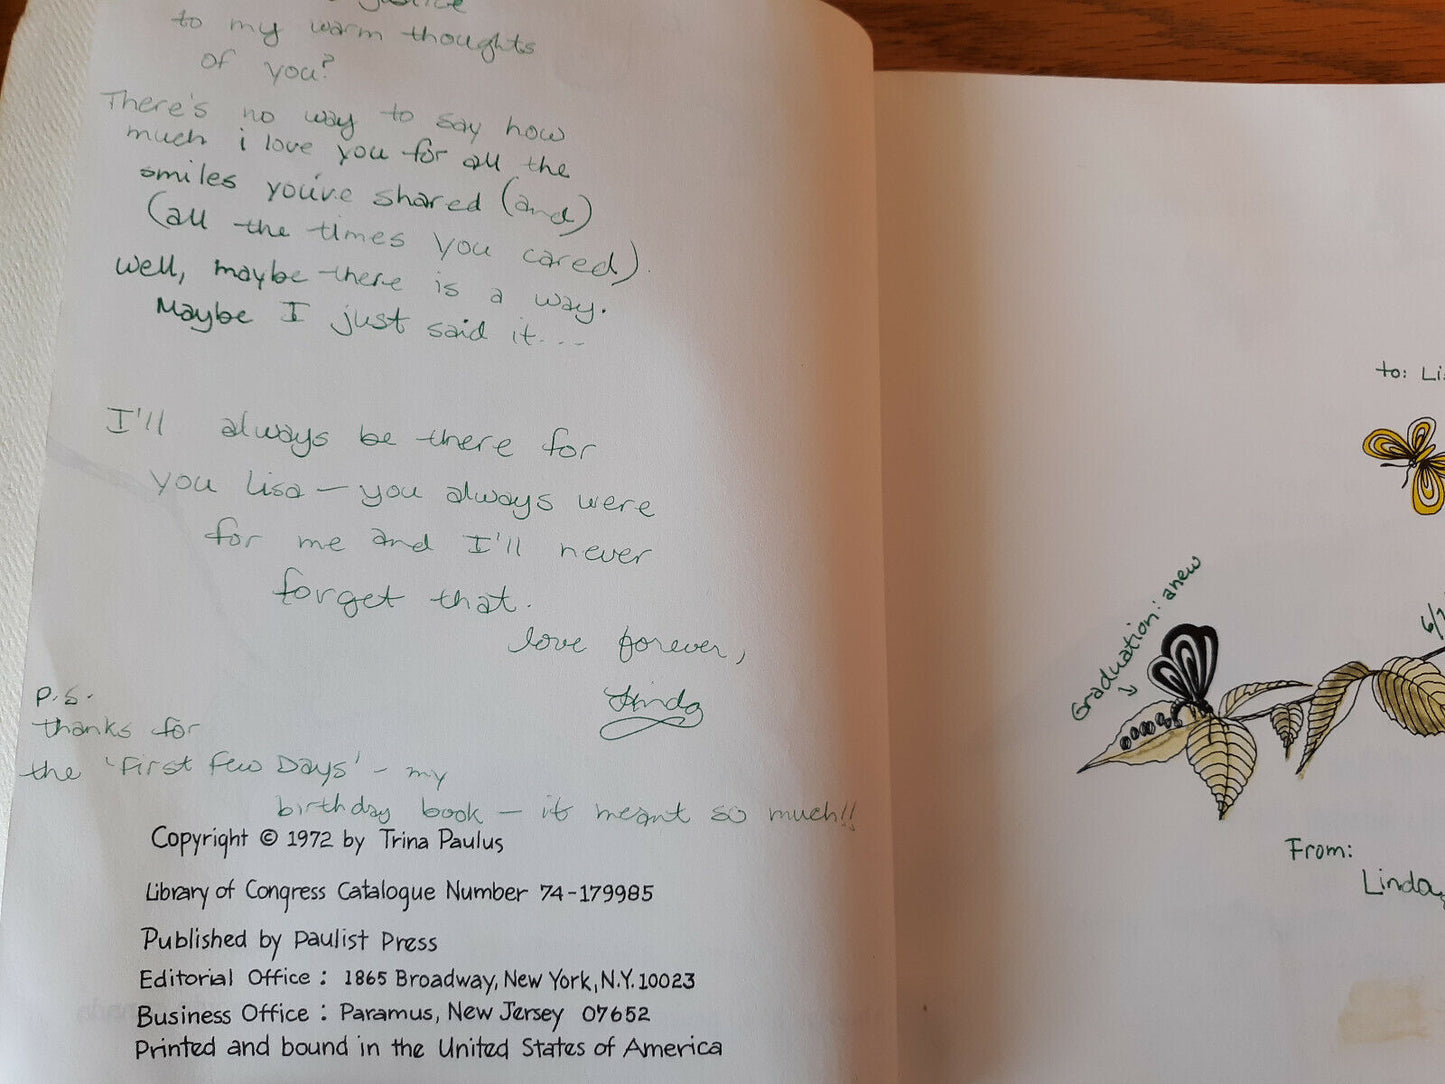 justice
to my warm thoughts
of you?
There's no way to say how
much i love you for all the
smiles you've shared (and)
(all the times you cared).
well, maybe there is a way.
Maybe I just said it...
I'll always be there for
you Lisa - you always were
for me and I'll never
forget that.
love forever,
Linda
P.S.
thanks for
the 'First Few Days' - my
birthday book - it meant so much!!
Copyright © 1972 by Trina Paulus
Library of Congress Catalogue Number 74-179985
Published by Paulist Press
Editorial Office : 1865 Broadway, New York, N.Y. 10023
Business Office : Paramus, New Jersey 07652
Printed and bound in the United States of America
to: Li
Graduation: anew
6/
From:
Linda